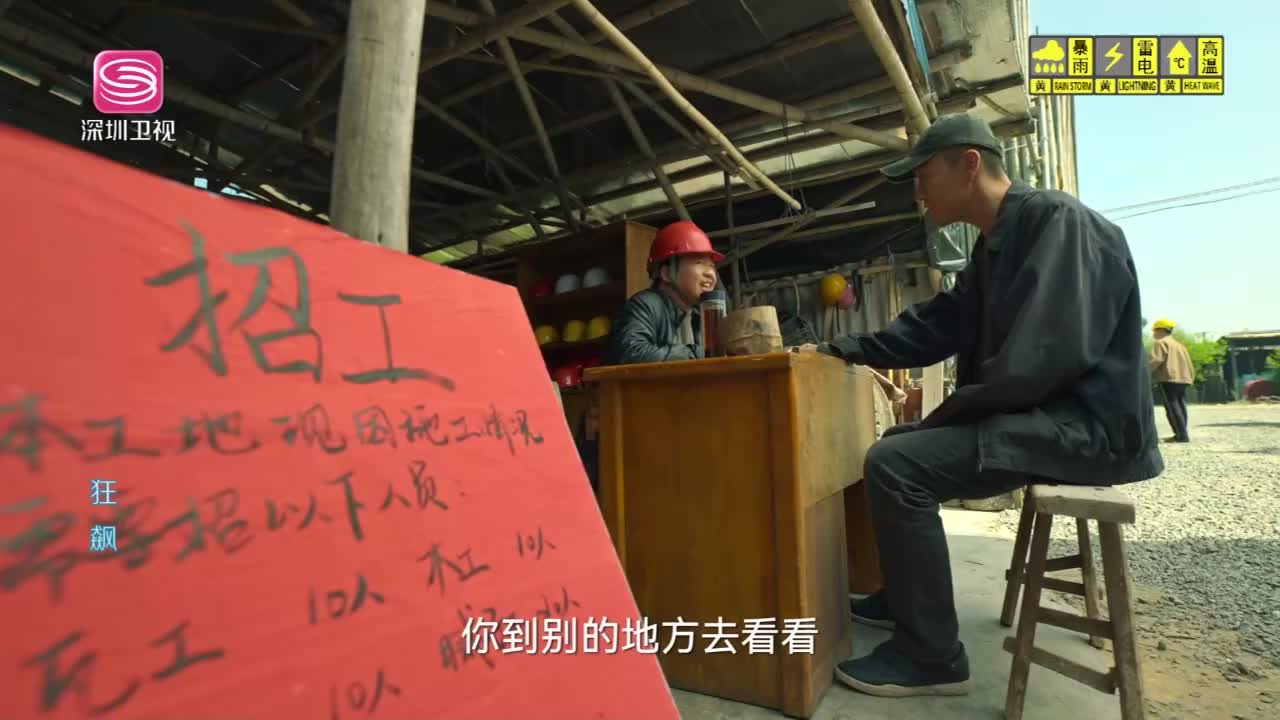 深圳卫视
暴雨
黄 RAIN STORM
雷电
黄 LIGHTNING
高温
℃
黄 HEAT WAVE
招工
本工地现因施工情况
需要招以下人员：
瓦工 10人 木工 10人
10人
狂飙
你到别的地方去看看